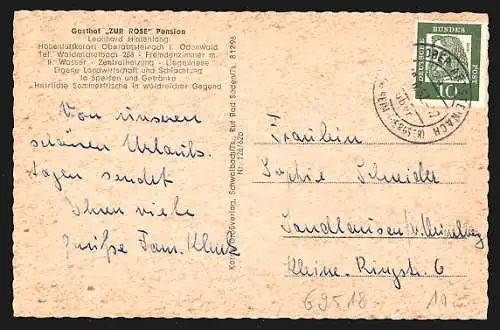 Gasthof „ZUR ROSE" Pension
Leonhard Hintenlang
Höhenluftkurort Oberabtsteinach i. Odenwald
Tel. Waldmichelbach 288 - Fremdenzimmer m.
fl. Wasser - Zentralheizung - Liegewiese
Eigene Landwirtschaft und Schlachtung
1a Speisen und Getränke
Herrliche Sommerfrische in waldreicher Gegend
Von unseren
schönen Urlaubs-
tagen sendet
Ihnen viele
Grüße Fam.
Schwalbach/Ts., Ruf Bad Soden/Ts. 81296
Nr. 128/62b
DEUTSCHE
BUNDES
10
Fräulein
Sophie Schneider
Sandhausen
Kleine Ringstr. 6
69518